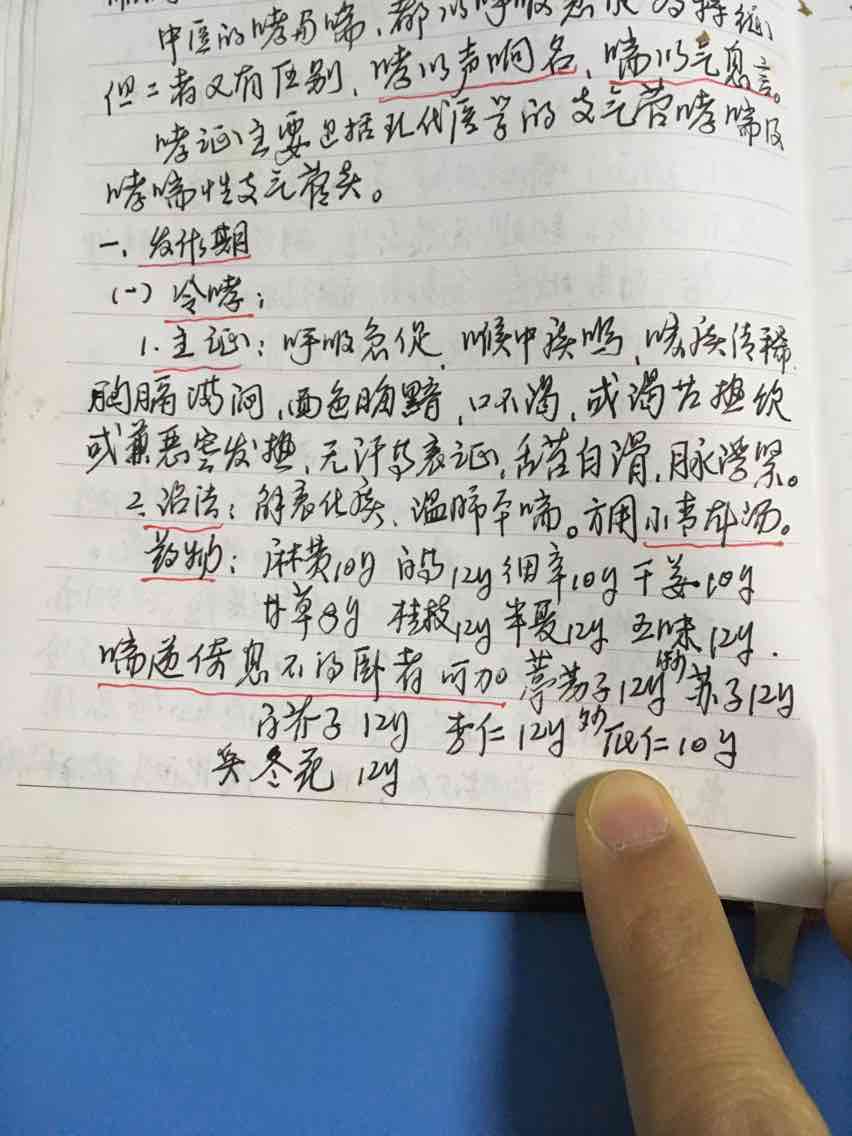 中医的哮与喘，都以呼吸急促为特征，
但二者又有区别，哮以声响名，喘以气息言。
哮证主要包括现代医学的支气管哮喘及
哮喘性支气管炎。
一、发作期
(一) 冷哮：
1. 主证：呼吸急促，喉中痰鸣，咳痰清稀，
胸膈满闷，面色晦黯，口不渴，或渴甘热饮
或兼恶寒发热，无汗等表证，舌苔白滑，脉浮紧。
2. 治法：解表化痰、温肺平喘。方用小青龙汤。
药物：麻黄10g 白芍12g 细辛10g 干姜10g
甘草8g 桂枝12g 半夏12g 五味12g.
喘逆倚息不得卧者可加 葶苈子12g 苏子12g
白芥子12g 杏仁12g 炒瓜仁10g
冬花12g